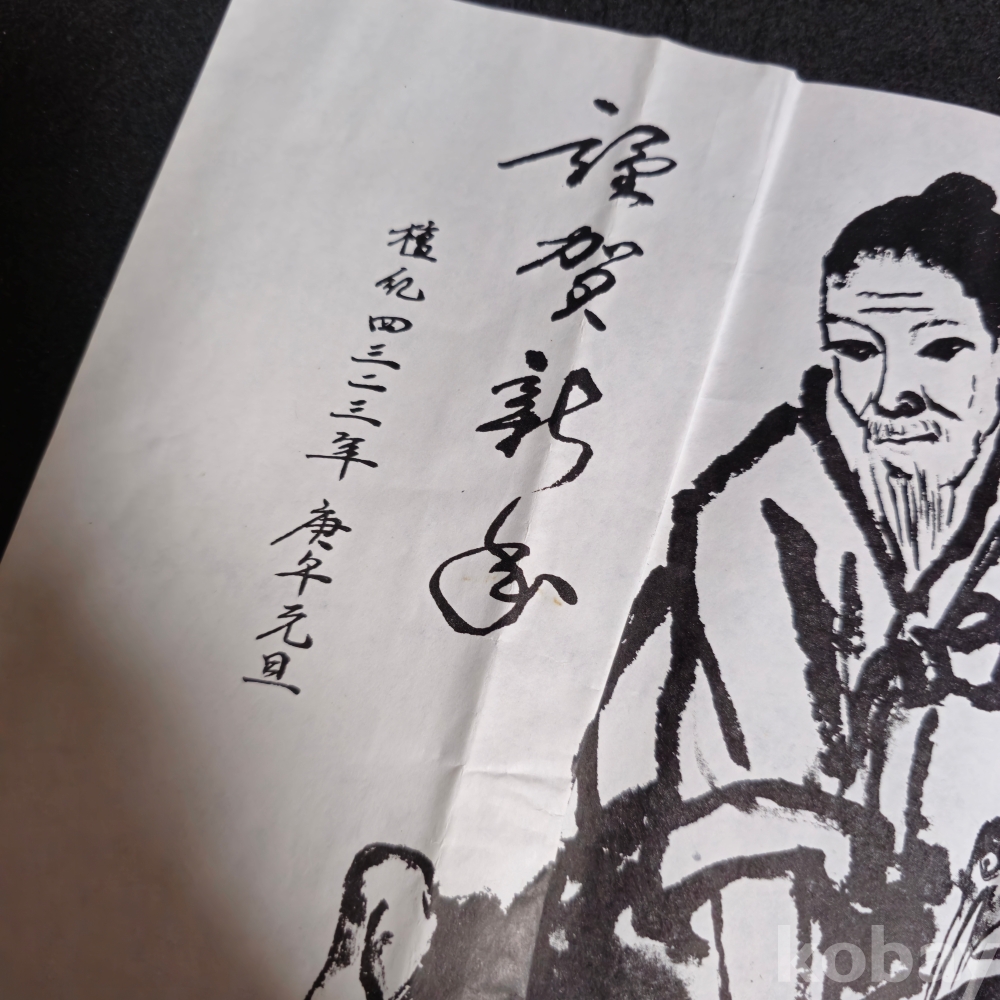 謹賀新年
檀紀四三二三年 庚午元旦